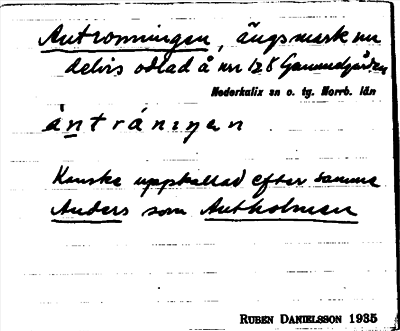 Antronningen, ängsmark nu
delvis odlad å nr 128 Gammelgården
Nederkalix sn o. tg. Norrb. län
àntránıŋen
Kanske uppkallad efter samma
Anders som Antholman
RUBEN DANIELSSON 1935